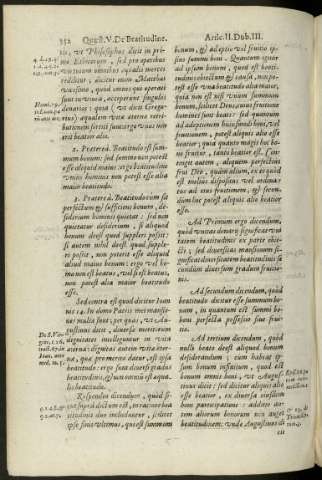 352 Quæst. V. De Beatitudine. Artic. II. Dub. III.
ut Philosophus dicit in primo
Ethicorum, sed pro operibus
virtutum omnibus æqualis merces
redditur: dicitur enim Matthæi
vigesimo, quod omnes qui operati
sunt in vinea, acceperunt singulos
denarios: quia (ut dicit Gregorius)
æqualem vitæ æternæ retributionem
sortiti sunt: ergo unus non
erit beatior alio.
2. Præterea. Beatitudo est summum
bonum: sed summo non potest
esse aliquid maius: ergo beatitudine
unius hominis non potest esse alia
maior beatitudo.
3. Præterea. Beatitudo cùm sit
perfectum & sufficiens bonum, desiderium
hominis quietat: sed non
quietatur desiderium, si aliquod
bonum deest quod suppleri possit:
si autem nihil deest quod suppleri
possit, non poterit esse aliquid
aliud maius bonum: ergo vel homo
non est beatus, vel si est beatus,
non potest alia maior beatitudo
esse.
Sed contra est quod dicitur Ioan.
14. In domo Patris mei mansiones
multæ sunt, per quas, ut Augustinus
dicit, diversæ meritorum
dignitates intelliguntur in vita
æterna: dignitas autem vitæ æternæ,
quæ pro merito datur, est ipsa
beatitudo: ergo sunt diversi gradus
beatitudinis, & non omnium est æqualis
beatitudo.
Respondeo dicendum, quòd sicut
suprà dictum est, in ratione beatitudinis
duo includuntur, scilicet
ipse finis ultimus, qui est summum
bonum, & adeptio vel fruitio ipsius
summi boni. Quantum igitur
ad ipsum bonum, quod est beatitudinis
obiectum & causa, non potest
esse una beatitudo alia maior,
quia non est nisi unum summum
bonum, scilicet Deus, cuius fruitione
homines sunt beati: sed quantum
ad adeptionem huiusmodi boni, vel
fruitionem, potest aliquis alio esse
beatior; quia quanto magis hoc bono
fruitur, tanto beatior est. Contingit
autem, aliquem perfectiùs
frui Deo, quàm alium, ex eo quòd
est meliùs dispositus vel ordinatus
ad eius fruitionem, & secundùm
hoc potest aliquis alio beatior
esse.
Ad Primum ergo dicendum,
quòd unitas denarii significat unitatem
beatitudinis ex parte obiecti;
sed diversitas mansionum significat
diversitatem beatitudinis secundùm
diversum gradum fruitionis.
Ad secundum dicendum, quòd
beatitudo dicitur esse summum bonum,
in quantum est summi boni
perfecta possessio sive fruitio.
Ad tertium dicendum, quòd
nulli beato deest aliquod bonum
desiderandum; cùm habeat ipsum
bonum infinitum, quod est
bonum omnis boni, ut Augustinus
dicit; sed dicitur aliquis alio
esse beatior, ex diversa eiusdem
boni participatione: additio autem
aliorum bonorum non auget
beatitudinem: unde Augustinus di-